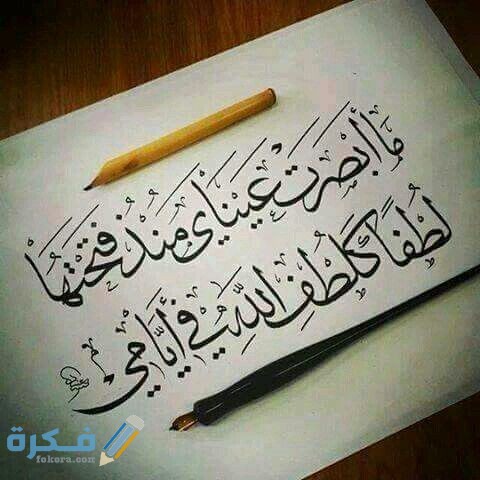 مَا أَبصَرَتْ عَينَايَ مُنذُ فَتَحْتُهَا
لُطْفاً كَلُطفِ اللّهِ فِي أيَّامِي
فكرة
fekera.com